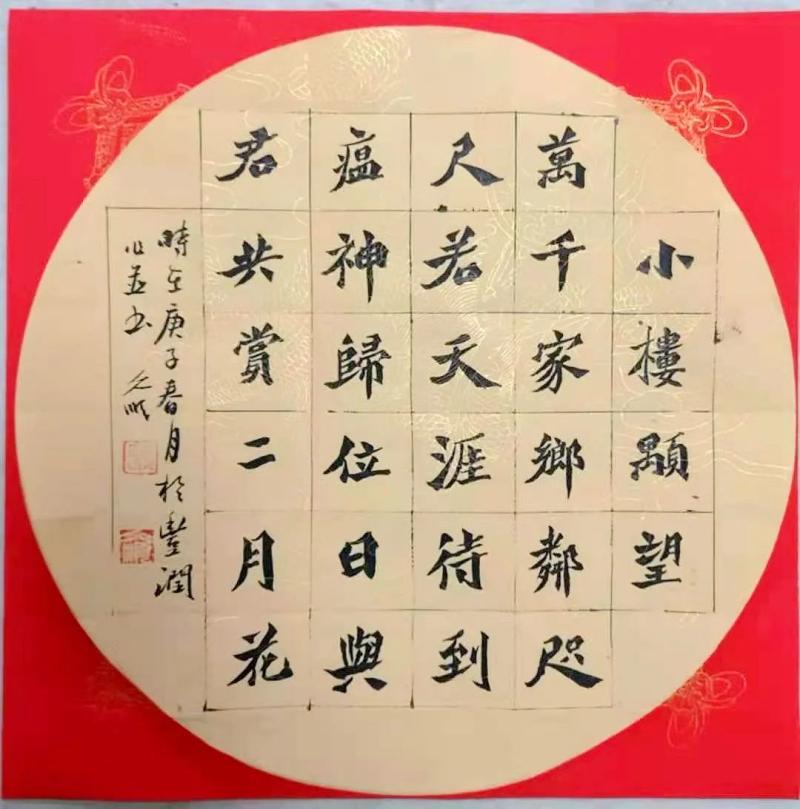 小樓顒望
萬千家鄉鄰咫
尺若天涯待到
瘟神歸位日與
君共賞二月花
時在庚子春月於豐潤
书